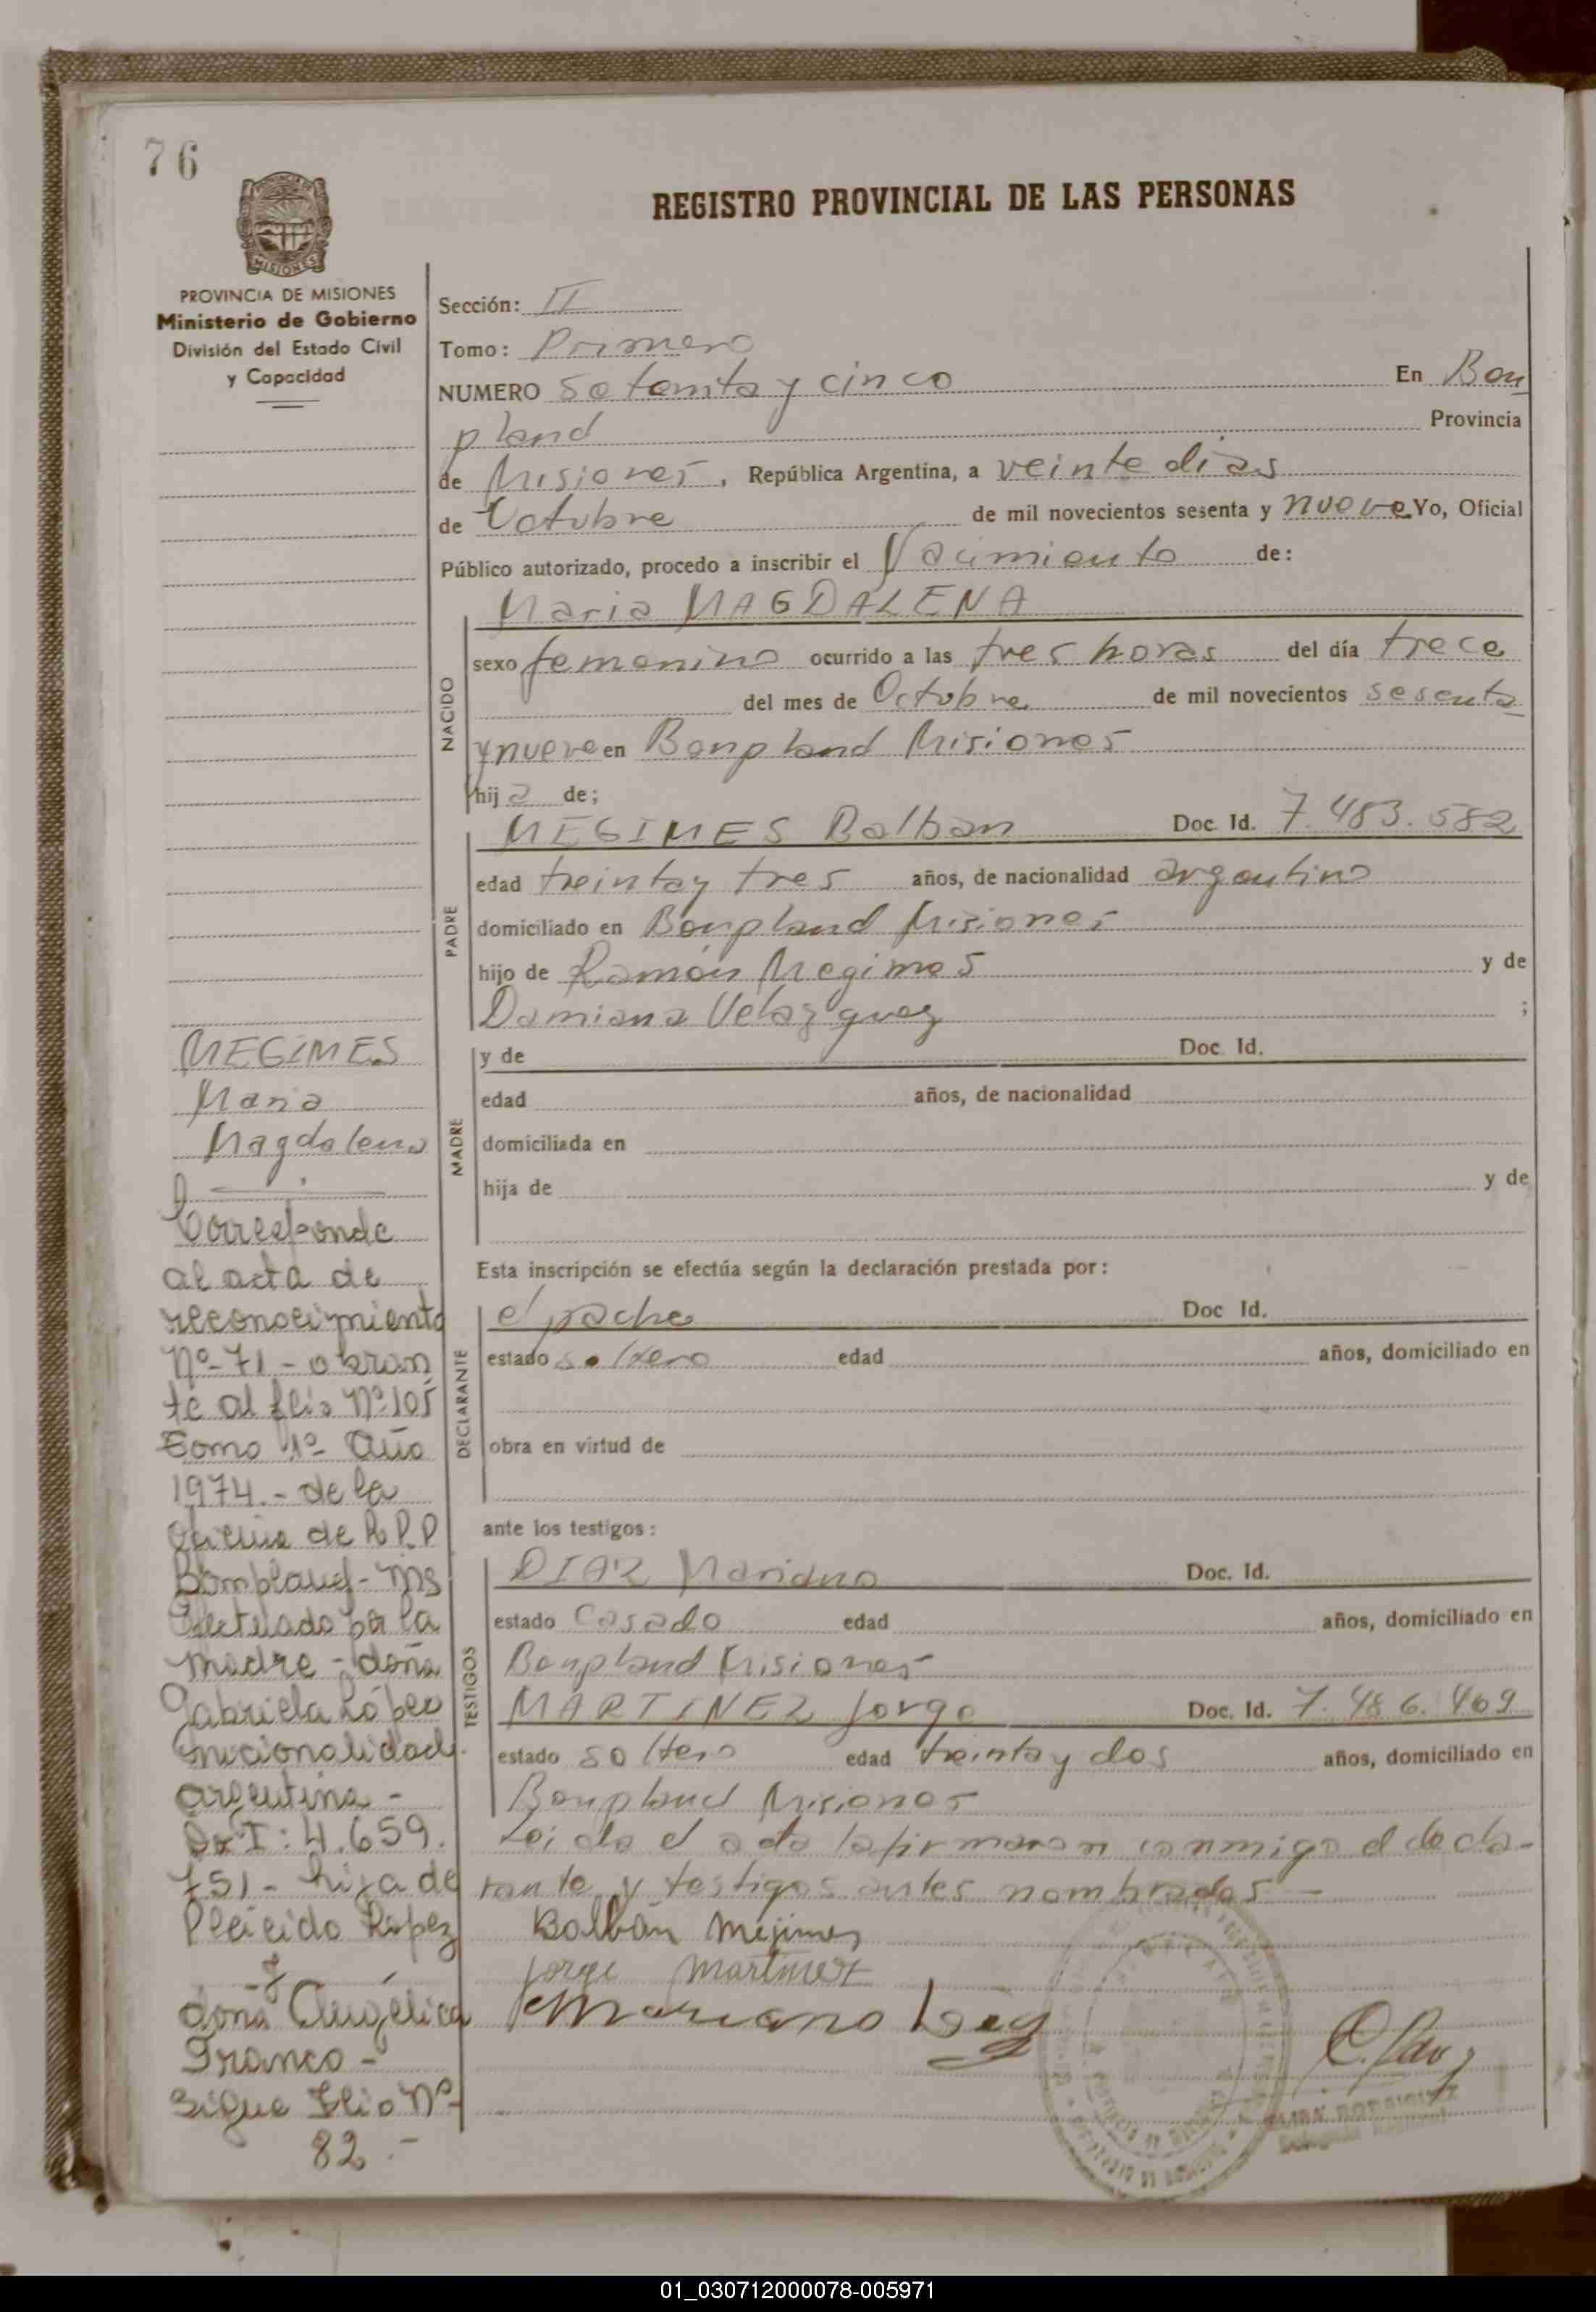 76
REGISTRO PROVINCIAL DE LAS PERSONAS
PROVINCIA DE MISIONES
Ministerio de Gobierno
División del Estado Civil
y Capacidad
Sección: II
Tomo: Primero
NUMERO Setenta y cinco En Bon
pland Provincia
de Misiones, República Argentina, a veinte dias
de Octubre de mil novecientos sesenta y nueve Yo, Oficial
Público autorizado, procedo a inscribir el Nacimiento de:
NACIDO
Maria MAGDALENA
sexo femenino ocurrido a las tres horas del día trece
del mes de Octubre de mil novecientos sesenta
y nueve en Bonpland Misiones
hij a de;
PADRE
MEGIMES Balban Doc. Id. 7.483.582
edad treinta y tres años, de nacionalidad argentino
domiciliado en Bonpland Misiones
hijo de Ramón Megimes y de
Damiana Velazquez ;
MADRE
y de Doc. Id.
edad años, de nacionalidad
domiciliada en
hija de y de
Esta inscripción se efectúa según la declaración prestada por:
DECLARANTE
el padre Doc. Id.
estado soltero edad años, domiciliado en
obra en virtud de
ante los testigos:
TESTIGOS
DIAZ Mariano Doc. Id.
estado Casado edad años, domiciliado en
Bonpland Misiones
MARTINEZ Jorge Doc. Id. 7.486.469
estado soltero edad treinta y dos años, domiciliado en
Bonpland Misiones
Leida el acta la firmaron conmigo el decla-
rante y testigos antes nombrados —
Balbán Mejimes
Jorge Martinez
Mariano Diaz
MEGIMES
Maria
Magdalena
Corresponde
al acta de
reconocimiento
Nº-71-obran
te al flio Nº 105
Tomo 1º- Año
1974.- de la
Oficina de R.P.P
Bompland-Ms
Efectuado por la
madre - doña
Gabriela López
nacionalidad
argentina -
D.I: 4.659.
751- hija de
Plácido López
-y
doña Angélica
Franco -
Sigue Flio Nº
82.-
01_030712000078-005971